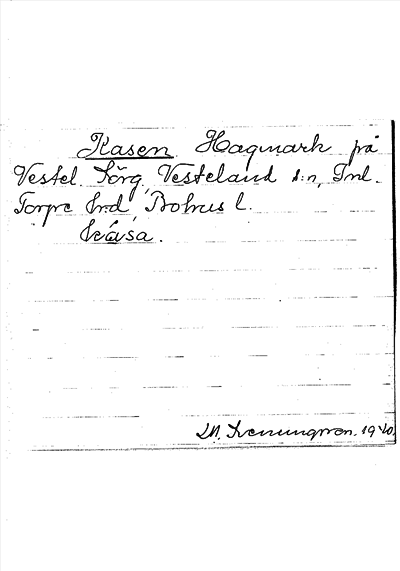 Kasen. Hagmark på
Vestel. Körg, Vesteland s:n, Inl.
Torpe hrd, Bohus l.
kåsa.
M. 1940.